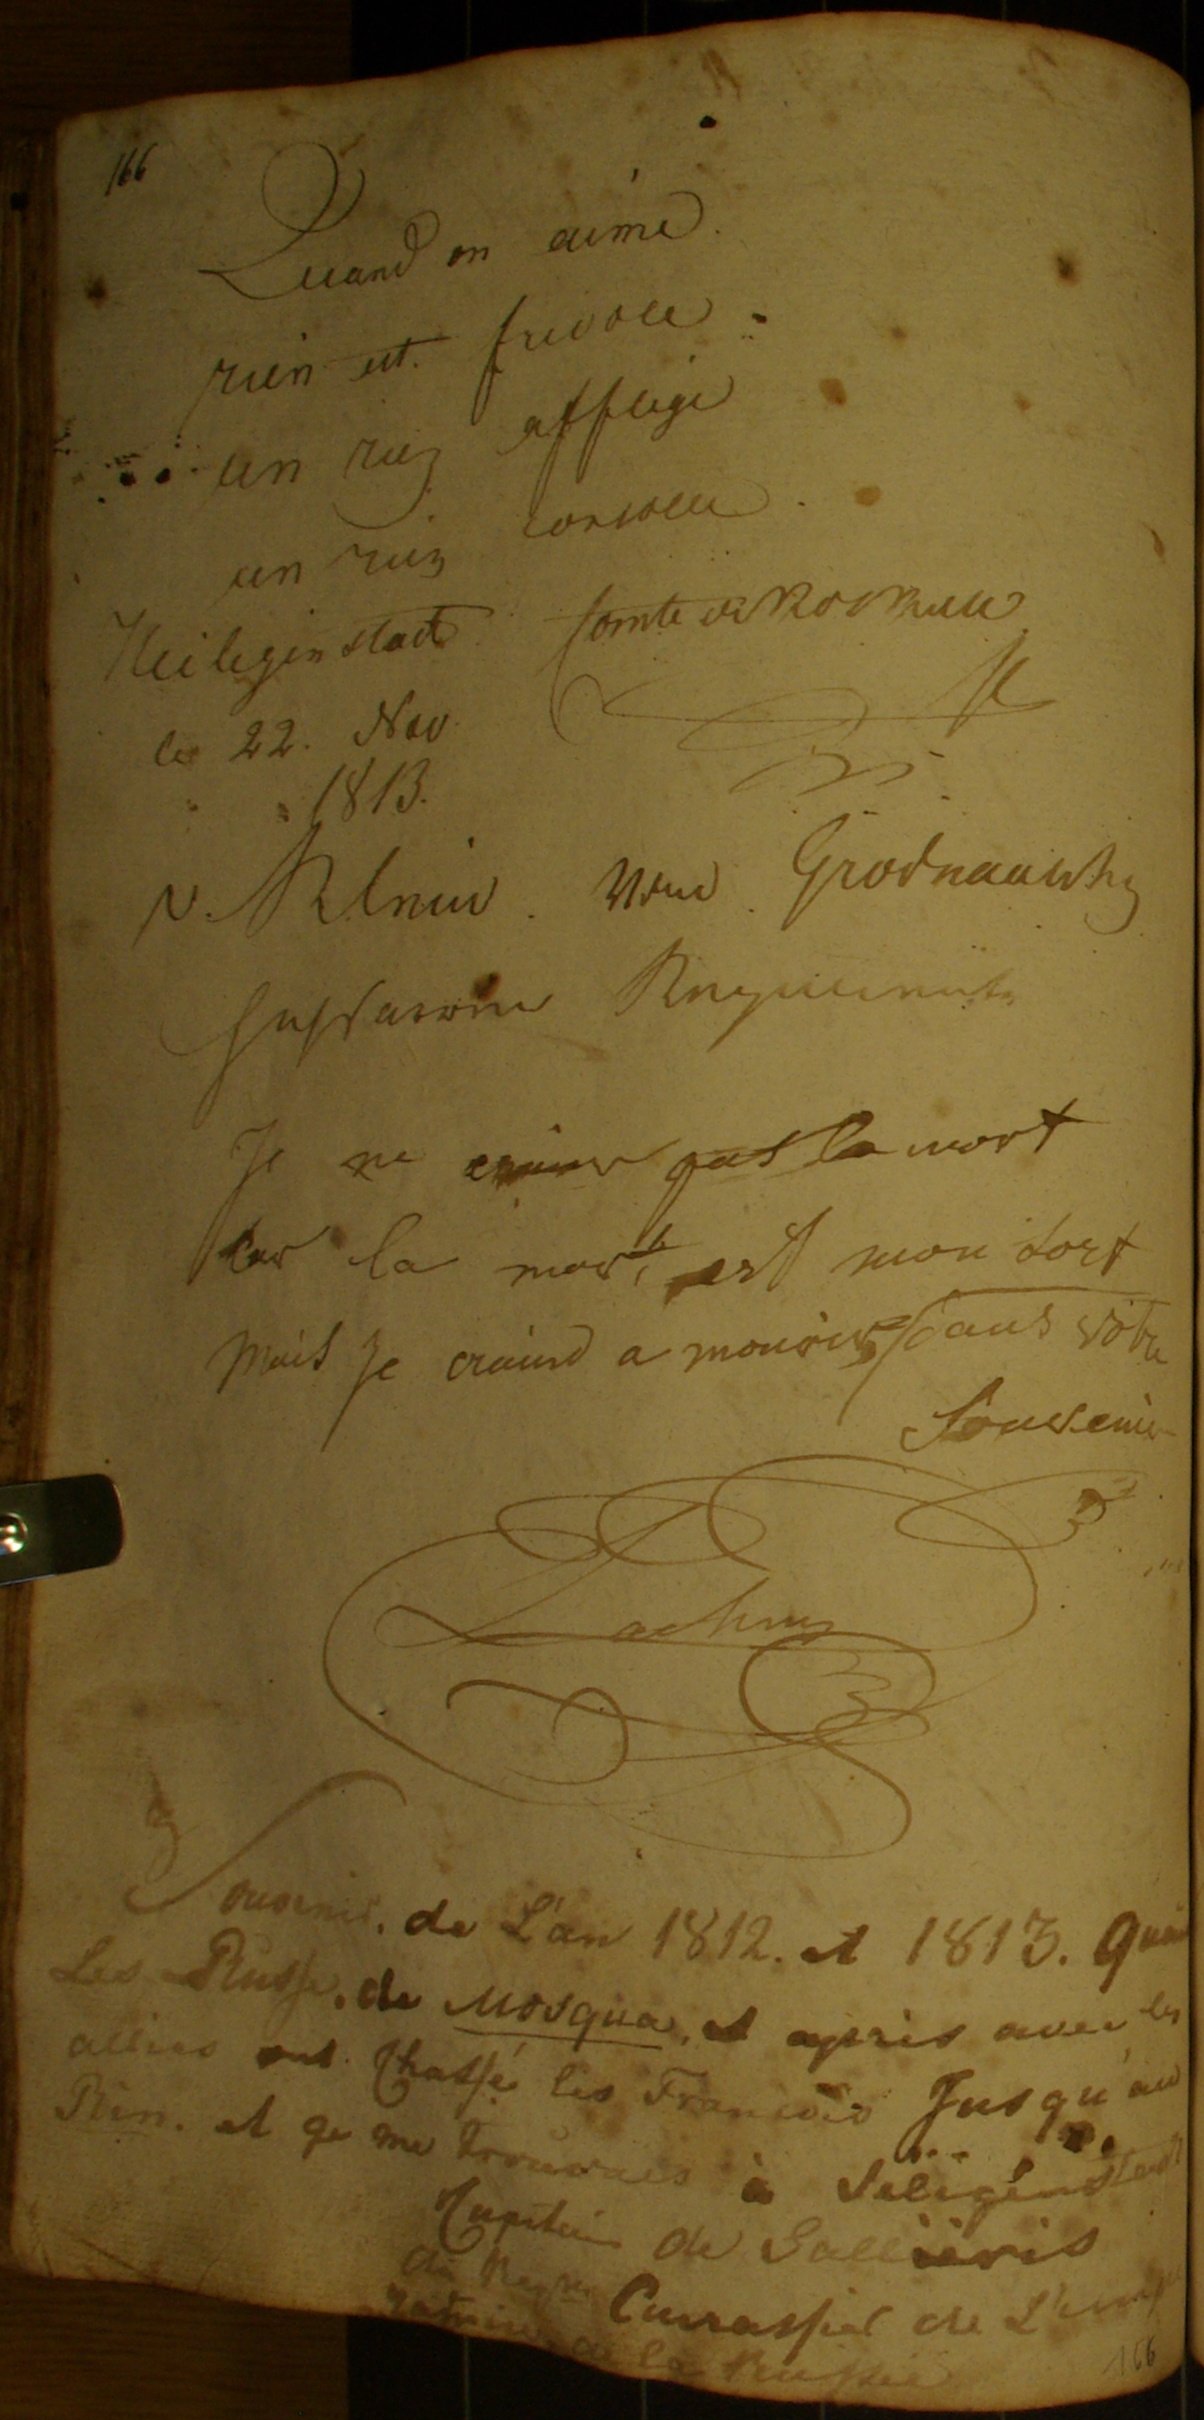 166
Quand on aime
rien est frivole
un rien afflige
un rien console
Heiligenstadt Comte de
le 22. Nov
1813.
v. Klein vom Grodnawschen
Hussaren Regiment
Je ne crains pas la mort
Car la mort, est mon sort
Mais Je craind a mourir, sans votre
Souvenir
Souvenir. de L'an 1812. et 1813. Quan
Les Russe. de Mosqua, et apris avec les
allies ont Chassé les Francois Jusqu'au
Rin. et ge me trouvaes à Seligenstadt
Capitain de
du Cuirassier de L'
de la Russie
166